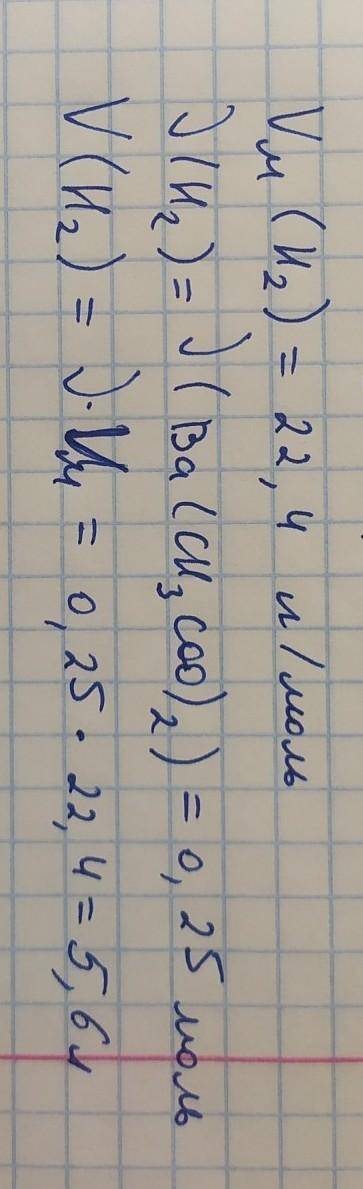 Vм (H₂) = 22,4 л/моль
ν(H₂) = ν(Ba(CH₃COO)₂) = 0,25 моль
V(H₂) = ν·Vм = 0,25·22,4 = 5,6л